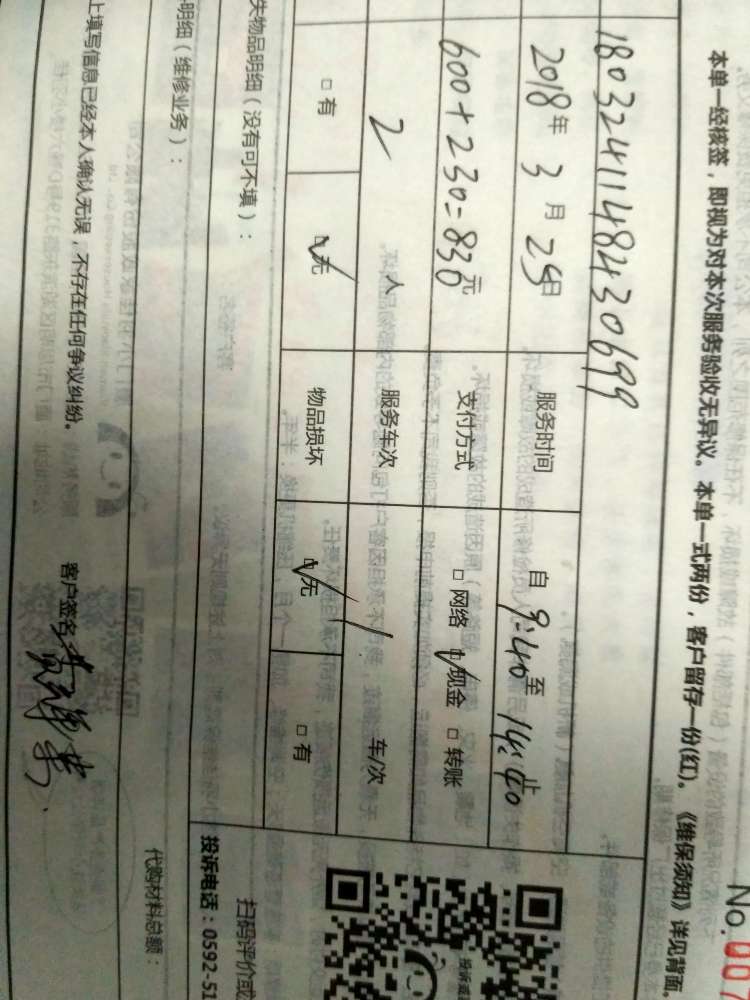 No.007
本单一经核签，即视为对本次服务验收无异议。本单一式两份，客户留存一份(红)。《维保须知》详见背面。
1803241148430699
2018年3月25日 服务时间 自9:40至14:40止
600+230=830元 支付方式 □网络 ☑现金 □转账
2人 服务车次 1 车/次
□有 ☑无 物品损坏 ☑无 □有
失物品明细（没有可不填）：
明细（维修业务）：
代购材料总额：
上填写信息已经本人确认无误，不存在任何争议纠纷。 客户签名
扫码评价或
投诉电话：0592-51